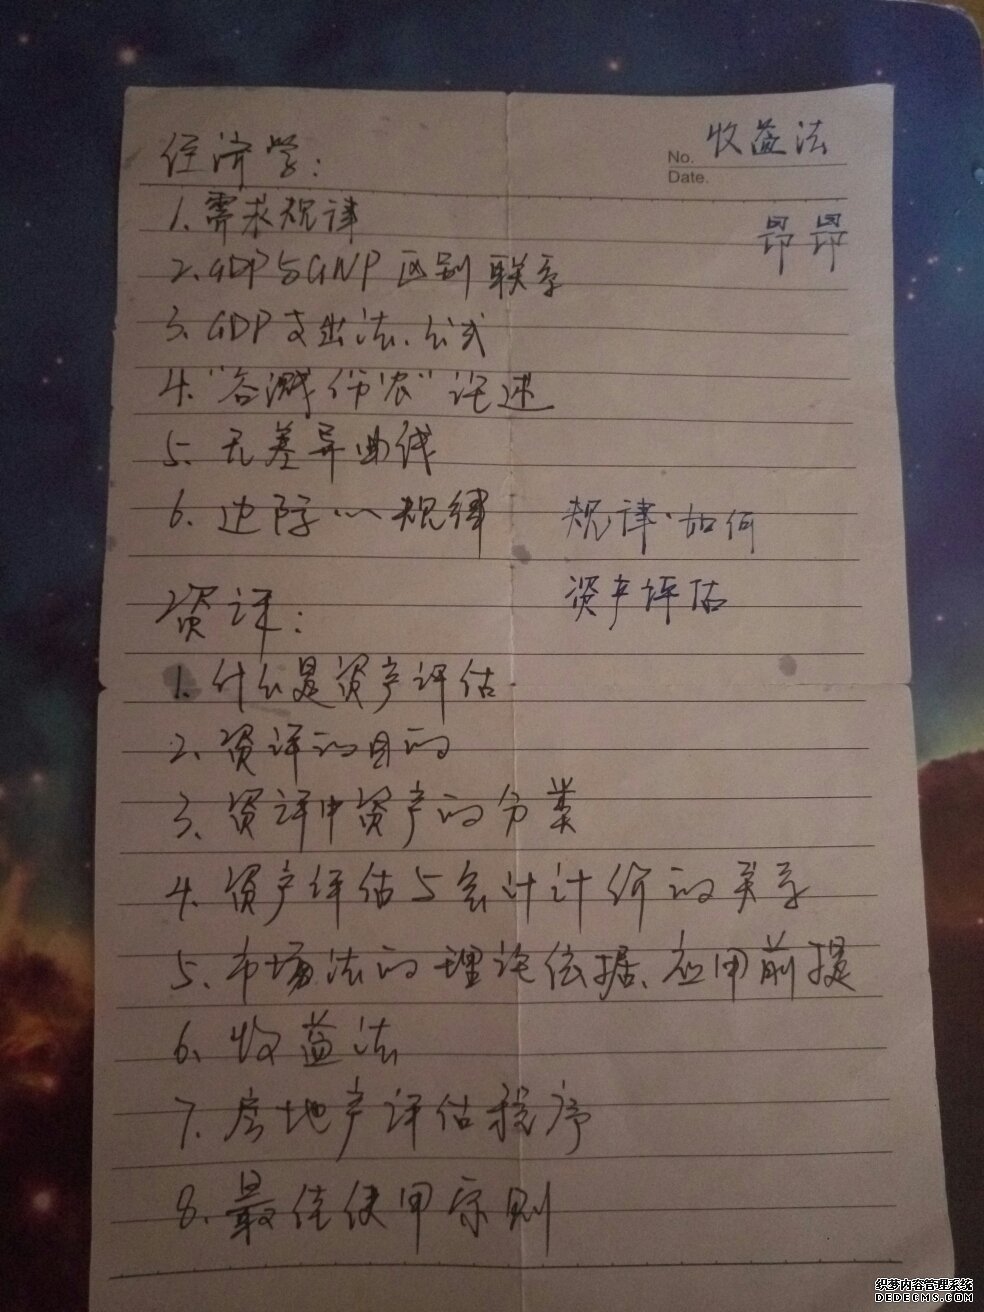 收益法
No.
Date.
经济学：
1. 需求规律
昂昂
2. GDP与GNP区别联系
3. GDP支出法、公式
4. "谷贱伤农"论述
5. 无差异曲线
6. 边际……规律 规律·如何
资产评估
资评：
1. 什么是资产评估
2. 资评的目的
3. 资评中资产的分类
4. 资产评估与会计计价的关系
5. 市场法的理论依据、应用前提
6. 收益法
7. 房地产评估程序
8. 最佳使用原则
织梦内容管理系统
DEDECMS.COM